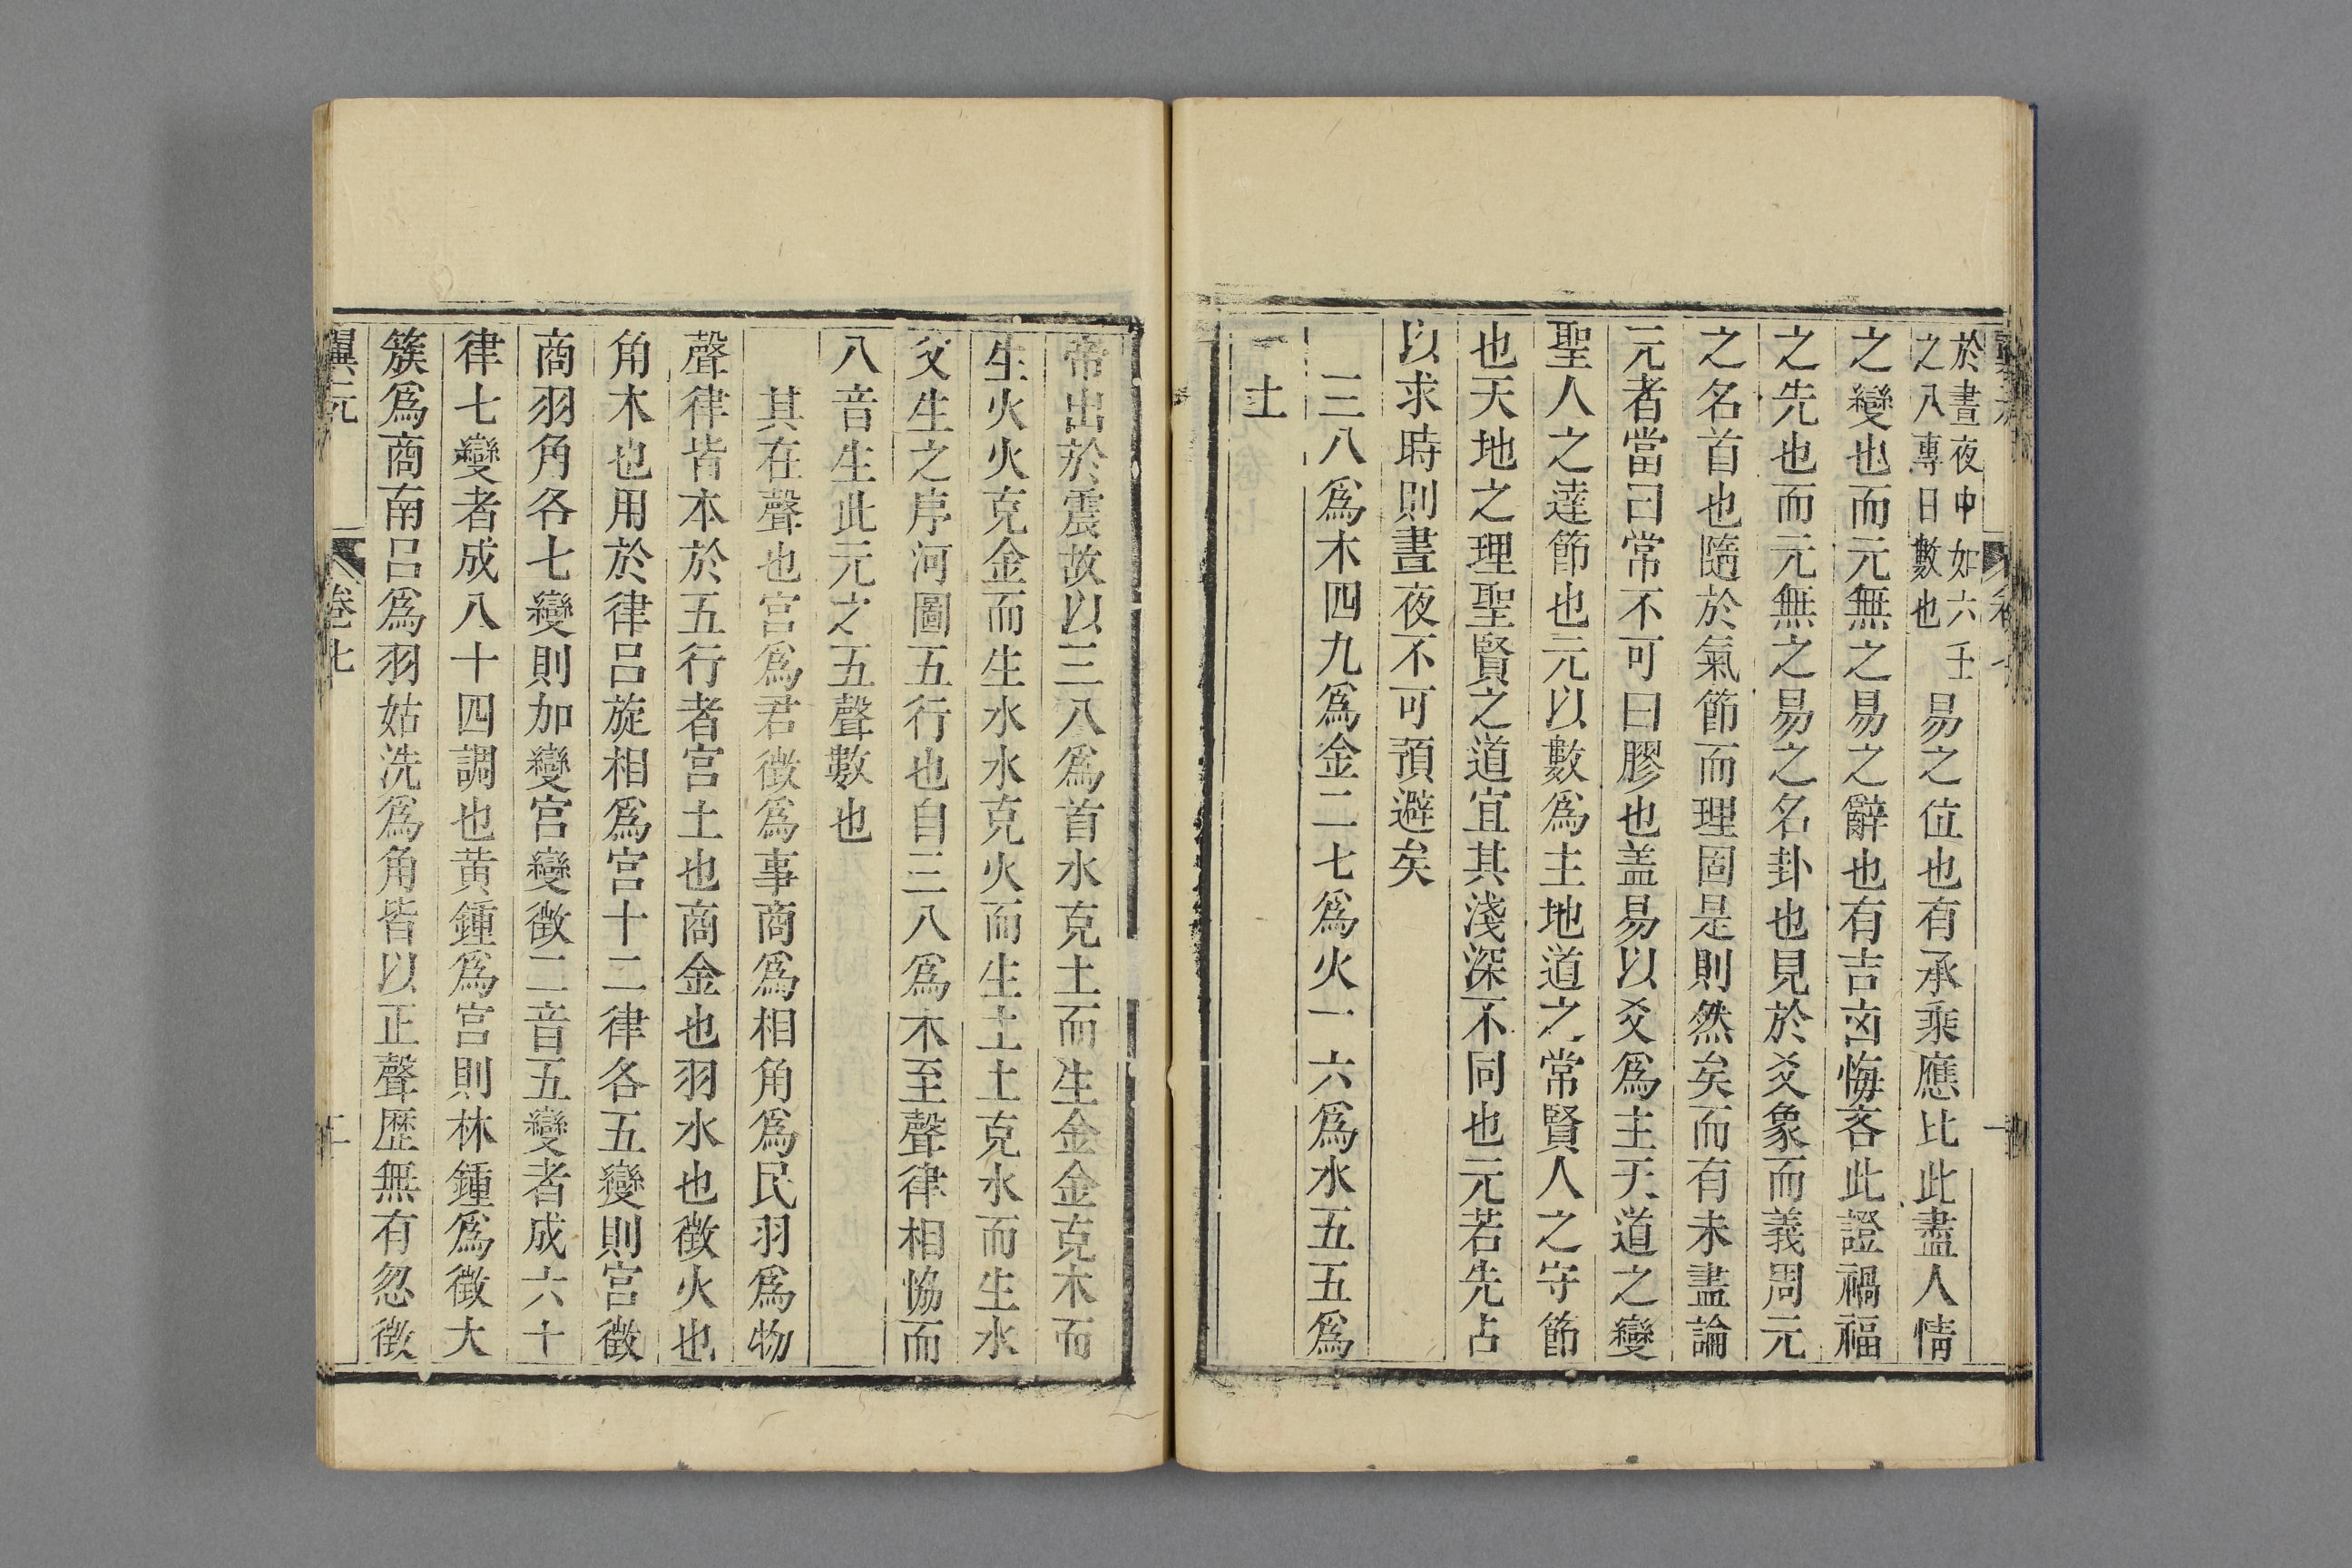 於晝夜中如六壬
之八專日數也
易之位也有承乘應比此盡人情
之變也而元無之易之辭也有吉凶悔吝此證禍福
之先也而元無之易之名卦也見於爻象而義周元
之名首也隨於氣節而理固是則然矣而有未盡論
元者當曰常不可曰膠也盖易以爻爲主天道之變
聖人之達節也元以數爲主地道之常賢人之守節
也天地之理聖賢之道宜其淺深不同也元若先占
以求時則晝夜不可預避矣
三八爲木四九爲金二七爲火一六爲水五五爲
土
帝出於震故以三八爲首水克土而生金金克木而
生火火克金而生水水克火而生土土克水而生水
父生之序河圖五行也自三八爲木至聲律相恊而
八音生此元之五聲數也
其在聲也宫爲君徵爲事商爲相角爲民羽爲物
聲律皆本於五行者宫土也商金也羽水也徵火也
角木也用於律吕旋相爲宫十二律各五變則宫徵
商羽角各七變則加變宫變徵二音五變者成六十
律七變者成八十四調也黄鍾爲宫則林鍾爲徵大
簇爲商南吕爲羽姑洗爲角皆以正聲歷無有忽徵
翼元
卷七
二